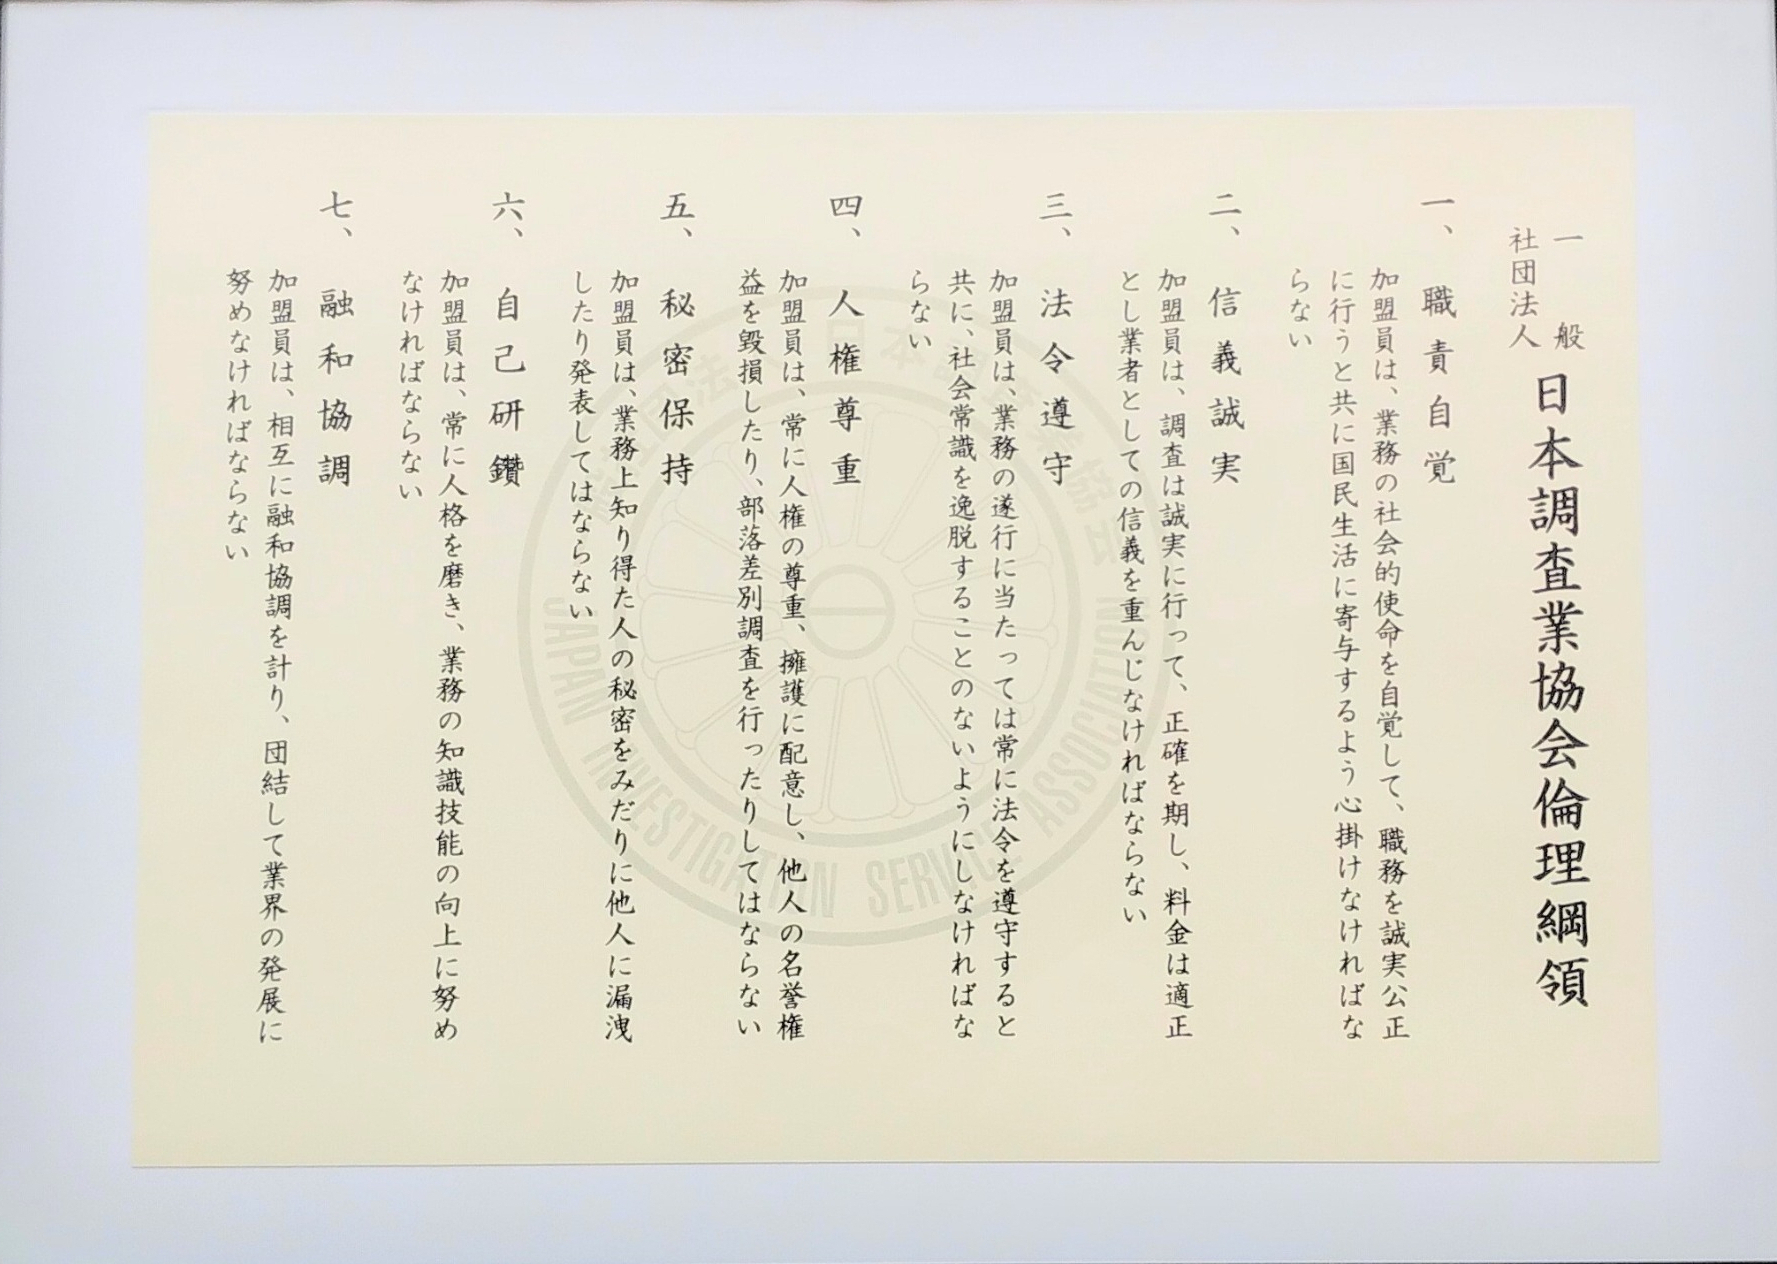 一般
社団法人
日本調査業協会倫理綱領
一、職責自覚
加盟員は、業務の社会的使命を自覚して、職務を誠実公正
に行うと共に国民生活に寄与するよう心掛けなければな
らない
二、信義誠実
加盟員は、調査は誠実に行って、正確を期し、料金は適正
とし業者としての信義を重んじなければならない
三、法令遵守
加盟員は、業務の遂行に当たっては常に法令を遵守すると
共に、社会常識を逸脱することのないようにしなければな
らない
四、人権尊重
加盟員は、常に人権の尊重、擁護に配意し、他人の名誉権
益を毀損したり、部落差別調査を行ったりしてはならない
五、秘密保持
加盟員は、業務上知り得た人の秘密をみだりに他人に漏洩
したり発表してはならない
六、自己研鑽
加盟員は、常に人格を磨き、業務の知識技能の向上に努め
なければならない
七、融和協調
加盟員は、相互に融和協調を計り、団結して業界の発展に
努めなければならない
社団法人 日本調査業協会
JAPAN INVESTIGATION SERVICE ASSOCIATION